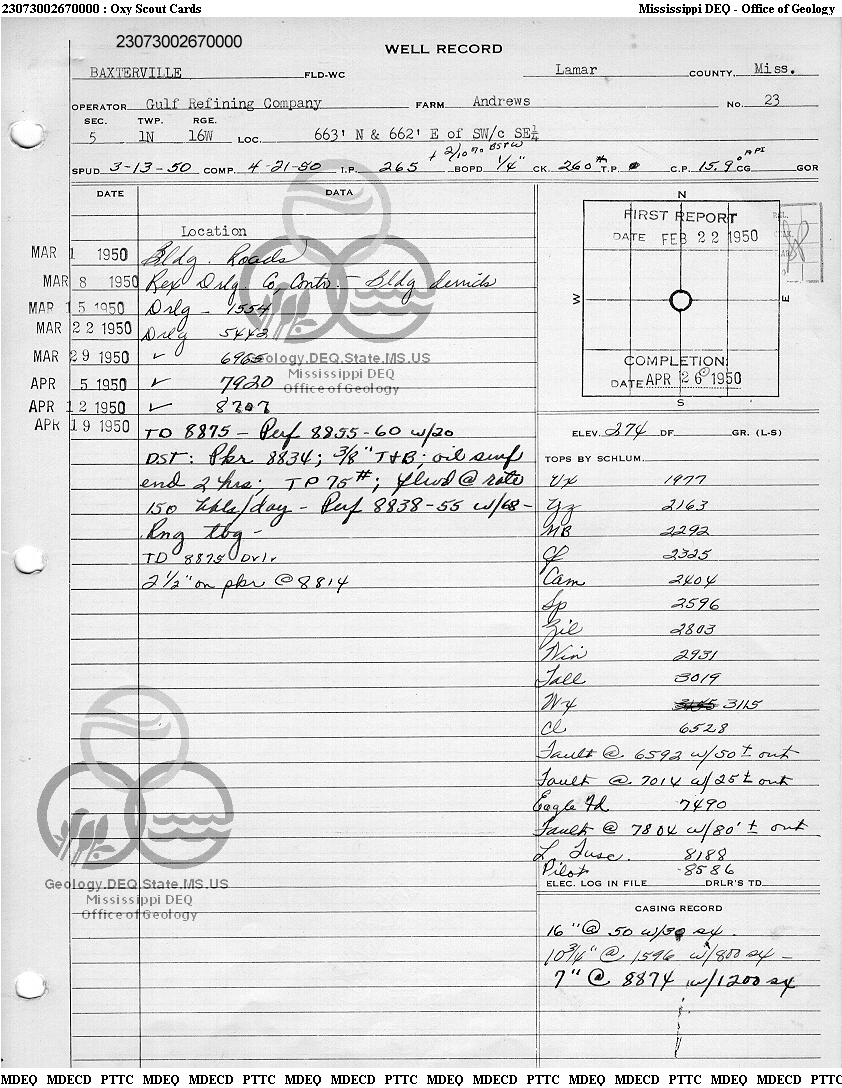 23073002670000 : Oxy Scout Cards Mississippi DEQ - Office of Geology
23073002670000
WELL RECORD
BAXTERVILLE FLD-WC Lamar COUNTY, Miss.
OPERATOR Gulf Refining Company FARM Andrews NO. 23
SEC. TWP. RGE.
5 1N 16W LOC. 663' N & 662' E of SW/c SE¼
+ 2/10 % BS+W
SPUD 3-13-50 COMP. 4-21-50 I.P. 265 BOPD 1/4" CK. 260# T.P. 0 C.P. 15.9° API CG GOR
DATE DATA
Location
MAR 1 1950 Bldg. Roads
MAR 8 1950 Rex Drlg. Co, Contr. - Bldg derrick
MAR 15 1950 Drlg - 1554
MAR 22 1950 Drlg 5442
MAR 29 1950 ✓ 6965
APR 5 1950 ✓ 7920
APR 12 1950 ✓ 8707
APR 19 1950 TD 8875 - Perf 8855-60 w/20
DST: Pkr 8834; 3/8" T+B; oil surf
end 2 hrs; TP 75#; flwd @ rate
150 bbls/day - Perf 8838-55 w/68 -
Rng tbg -
TD 8875 Drlr
2 1/2" on pkr @ 8814
N
FIRST REPORT
DATE FEB 22 1950
W E
COMPLETION:
DATE APR 26 1950
S
ELEV. 274 DF. GR. (L-S)
TOPS BY SCHLUM.
Vx 1977
Yz 2163
MB 2292
Cf 2325
Cam 2404
Sp 2596
Zil 2803
Win 2931
Tall 3019
Wx 3115
Cl 6528
Fault @ 6592 w/50'± out
Fault @ 7014 w/25'± out
Eagle Fd 7490
Fault @ 7804 w/80'± out
L. Tusc. 8188
Pilot 8586
ELEC. LOG IN FILE DRLR'S TD
CASING RECORD
16" @ 50 w/30 sx.
10 3/4" @ 1596 w/800 sx -
7" @ 8874 w/1200 sx
Geology.DEQ.State.MS.US
Mississippi DEQ
Office of Geology
Geology.DEQ.State.MS.US
Mississippi DEQ
Office of Geology
MDEQ MDECD PTTC MDEQ MDECD PTTC MDEQ MDECD PTTC MDEQ MDECD PTTC MDEQ MDECD PTTC MDEQ MDECD PTTC